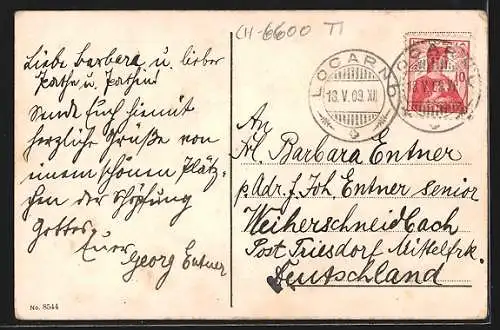 CH-6600 TI
Liebe Barbara u. lieber
Pathe u. Pathin!
Sende Euch hiemit
herzliche Grüße von
einem schönen Plätz-
chen der Schöpfung
Gottes.
Euer
Georg Entner
No. 8544
LOCARNO
18.V.09.XI
LOCARNO
10
An
Frl. Barbara Entner
p. Adr. f. Joh. Entner senior
Weiherschneidbach
Post Triesdorf Mittelfrk.
Deutschland